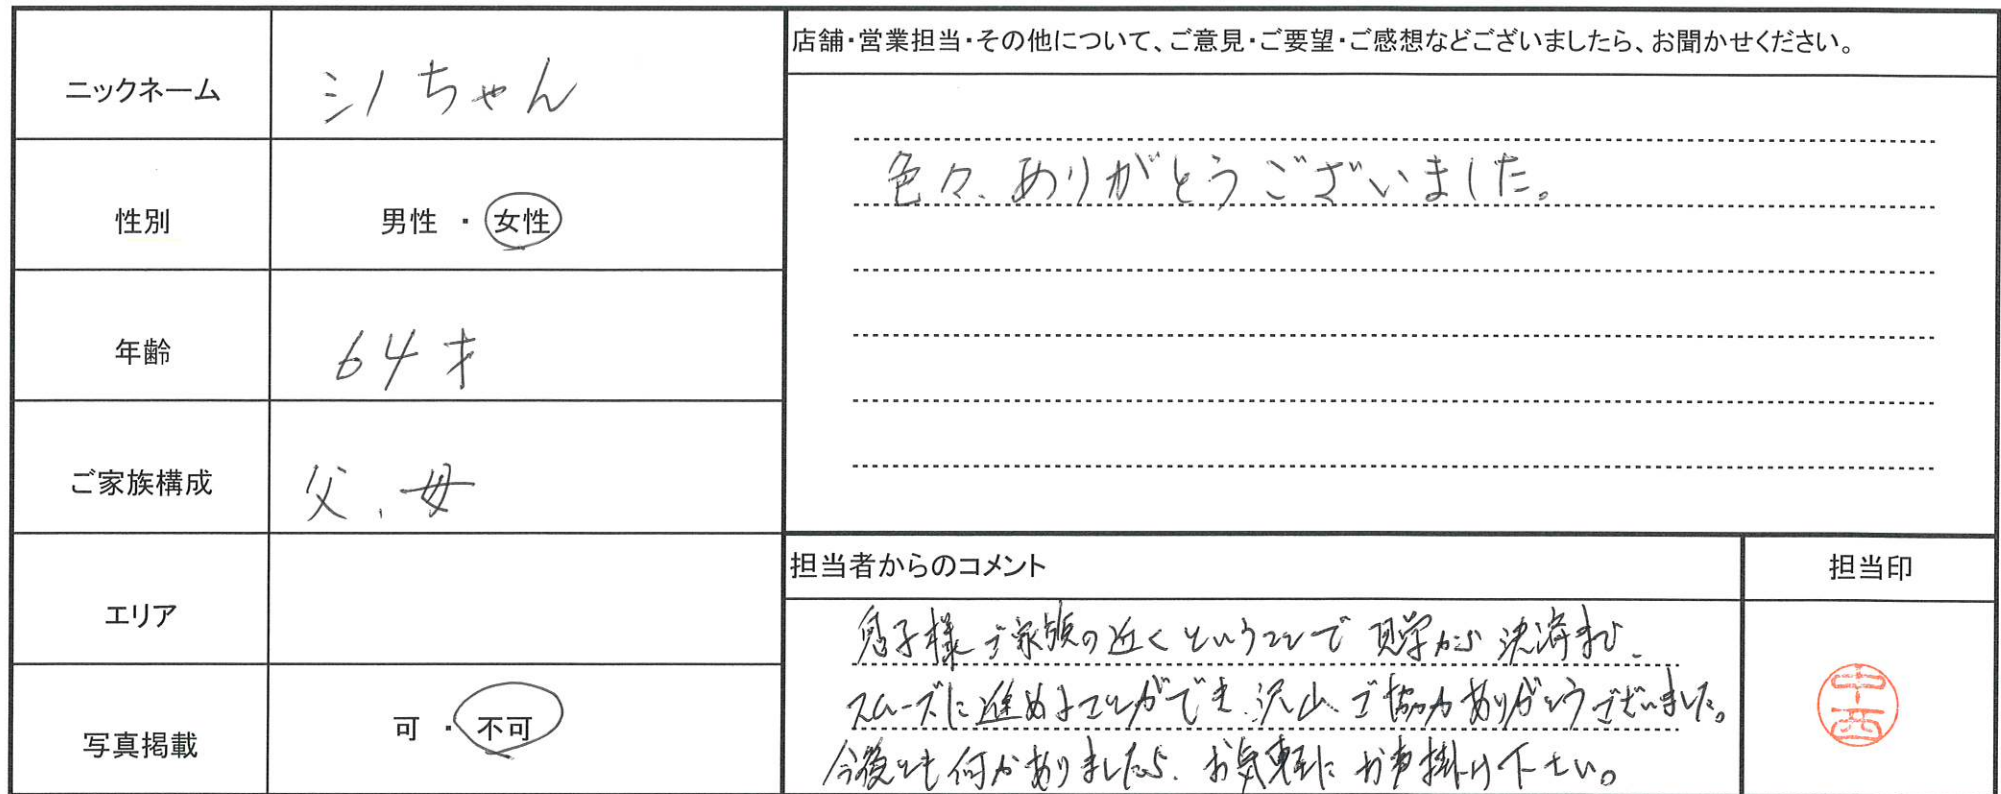 ニックネーム
シノちゃん
性別
男性 ・ 女性
年齢
64才
ご家族構成
父、母
エリア
写真掲載
可 ・ 不可
店舗・営業担当・その他について、ご意見・ご要望・ご感想などございましたら、お聞かせください。
色々、ありがとうございました。
担当者からのコメント
息子様ご家族の近くということで見学から決済まで、
スムーズに進めることができ、沢山ご協力ありがとうございました。
今後とも何かありましたら、お気軽にお声掛け下さい。
担当印
中西